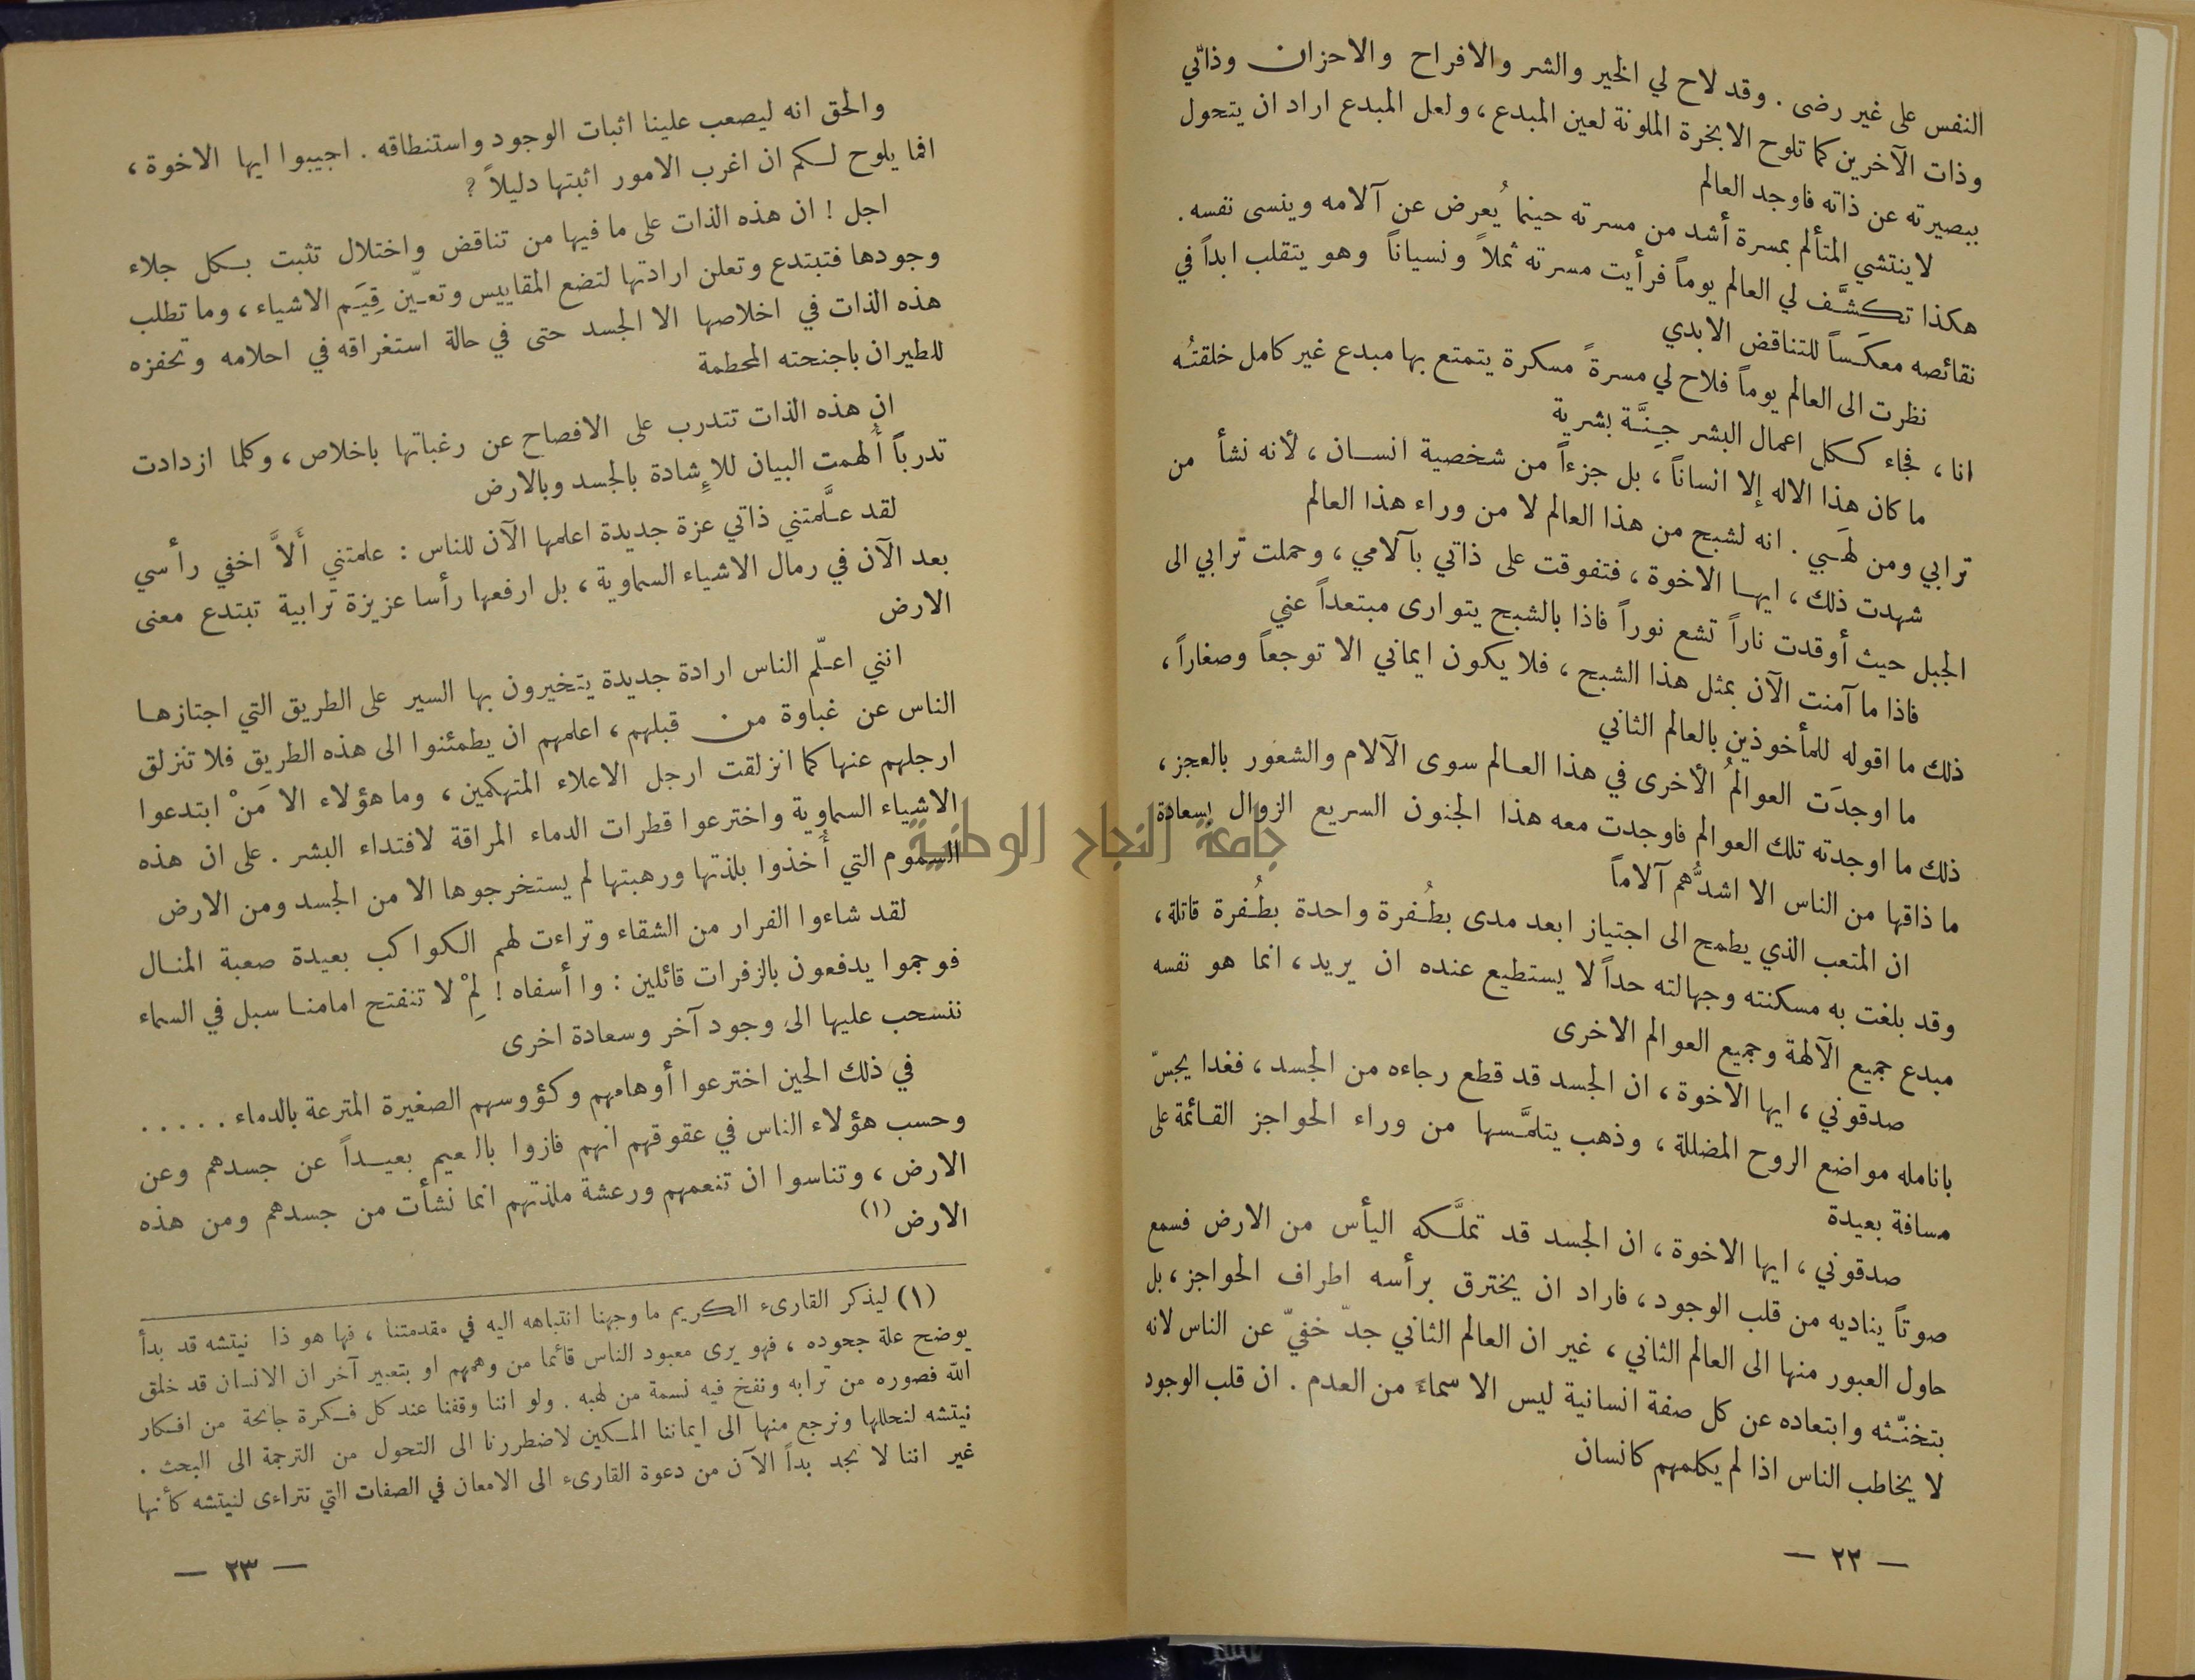 النفس على غير رضى . وقد لاح لي الخير والشر والافراح والاحزان وذاتي
وذات الآخرين كما تلوح الابخرة الملونة لعين المبدع ، ولعل المبدع اراد ان يتحول
ببصيرته عن ذاته فاوجد العالم
لا ينتشي المتألم بمسرة أشد من مسرته حينما يُعرض عن آلامه وينسى نفسه .
هكذا تكشَّف لي العالم يوماً فرأيت مسرته ثملاً ونسياناً وهو يتقلب ابداً في
نقائصه معكَساً للتناقض الابدي
نظرت الى العالم يوماً فلاح لي مسرةً مسكرة يتمتع بها مبدع غير كامل خلقتُه
انا ، فجاء ككل اعمال البشر جِنَّة بشرية
ما كان هذا الاله إلا انساناً ، بل جزءاً من شخصية انسان ، لأنه نشأ من
ترابي ومن لهَبي . انه لشبح من هذا العالم لا من وراء هذا العالم
شهدت ذلك ، ايها الاخوة ، فتفوقت على ذاتي بآلامي ، وحملت ترابي الى
الجبل حيث أوقدت ناراً تشع نوراً فاذا بالشبح يتوارى مبتعداً عني
فاذا ما آمنت الآن بمثل هذا الشبح ، فلا يكون ايماني الا توجعاً وصغاراً ،
ذلك ما اقوله للمأخوذين بالعالم الثاني
ما اوجدَت العوالمُ الأخرى في هذا العالم سوى الآلام والشعور بالعجز ،
ذلك ما اوجدته تلك العوالم فاوجدت معه هذا الجنون السريع الزوال بسعادة
ما ذاقها من الناس الا اشدُّهم آلاماً
ان المتعب الذي يطمح الى اجتياز ابعد مدى بطُفرة واحدة بطُفرة قاتلة ،
وقد بلغت به مسكنته وجهالته حداً لا يستطيع عنده ان يريد ، انما هو نفسه
مبدع جميع الآلهة وجميع العوالم الاخرى
صدقوني ، ايها الاخوة ، ان الجسد قد قطع رجاءه من الجسد ، فغدا يجسّ
بانامله مواضع الروح المضللة ، وذهب يتلمَّسها من وراء الحواجز القائمة على
مسافة بعيدة
صدقوني ، ايها الاخوة ، ان الجسد قد تملَّكه اليأس من الارض فسمع
صوتاً يناديه من قلب الوجود ، فاراد ان يخترق برأسه اطراف الحواجز ، بل
حاول العبور منها الى العالم الثاني ، غير ان العالم الثاني جدّ خفيّ عن الناس لانه
بتخنّثه وابتعاده عن كل صفة انسانية ليس الا سماءً من العدم . ان قلب الوجود
لا يخاطب الناس اذا لم يكلمهم كانسان
— ٢٢ —
والحق انه ليصعب علينا اثبات الوجود واستنطاقه . اجيبوا ايها الاخوة ،
افما يلوح لكم ان اغرب الامور اثبتها دليلاً ؟
اجل ! ان هذه الذات على ما فيها من تناقض واختلال تثبت بكل جلاء
وجودها فتبتدع وتعلن ارادتها لتضع المقاييس وتعيّن قِيَم الاشياء ، وما تطلب
هذه الذات في اخلاصها الا الجسد حتى في حالة استغراقه في احلامه وتحفزه
للطيران باجنحته المحطمة
ان هذه الذات تتدرب على الافصاح عن رغباتها باخلاص ، وكلما ازدادت
تدرباً أُلهمت البيان للإشادة بالجسد وبالارض
لقد علَّمتني ذاتي عزة جديدة اعلمها الآن للناس : علمتني أَلاَّ اخفي رأسي
بعد الآن في رمال الاشياء السماوية ، بل ارفعها رأسا عزيزة ترابية تبتدع معنى
الارض
انني اعلّم الناس ارادة جديدة يتخيرون بها السير على الطريق التي اجتازها
الناس عن غباوة من قبلهم ، اعلمهم ان يطمئنوا الى هذه الطريق فلا تنزلق
ارجلهم عنها كما انزلقت ارجل الاعلاء المتهكمين ، وما هؤلاء الا مَنْ ابتدعوا
الاشياء السماوية واخترعوا قطرات الدماء المراقة لافتداء البشر . على ان هذه
السموم التي أُخذوا بلذتها ورهبتها لم يستخرجوها الا من الجسد ومن الارض
لقد شاءوا الفرار من الشقاء وتراءت لهم الكواكب بعيدة صعبة المنال
فوجموا يدفعون بالزفرات قائلين : وا أسفاه ! لِمْ لا تنفتح امامنا سبل في السماء
ننسحب عليها الى وجود آخر وسعادة اخرى
في ذلك الحين اخترعوا أوهامهم وكؤوسهم الصغيرة المترعة بالدماء . . . . .
وحسب هؤلاء الناس في عقوقهم انهم فازوا بالنعيم بعيداً عن جسدهم وعن
الارض ، وتناسوا ان تنعمهم ورعشة ملذتهم انما نشأت من جسدهم ومن هذه
الارض (١)
(١) ليذكر القارىء الكريم ما وجهنا انتباهه اليه في مقدمتنا ، فها هو ذا نيتشه قد بدأ
يوضح علة جحوده ، فهو يرى معبود الناس قائما من وهمهم او بتعبير آخر ان الانسان قد خلق
الله فصوره من ترابه ونفخ فيه نسمة من لهبه . ولو اننا وقفنا عند كل فكرة جانحة من افكار
نيتشه لنحللها ونرجع منها الى ايماننا المكين لاضطررنا الى التحول من الترجمة الى البحث .
غير اننا لا نجد بداً الآن من دعوة القارىء الى الامعان في الصفات التي تتراءى لنيتشه كأنها
— ٢٣ —
جامعة النجاح الوطنية